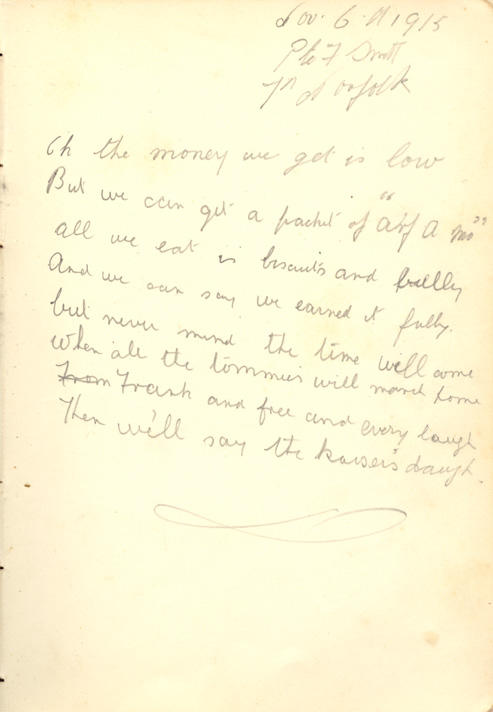 Nov. 6th 1915
Pte F Smith
7th Norfolk
Oh the money we get is low
But we can get a packet of "Arf A Mo"
all we eat is biscuits and bully
And we can say we earned it fully.
but never mind the time will come
When all the tommies will march home
From Frank and free and every laugh
Then we'll say the Kaiser's daugh